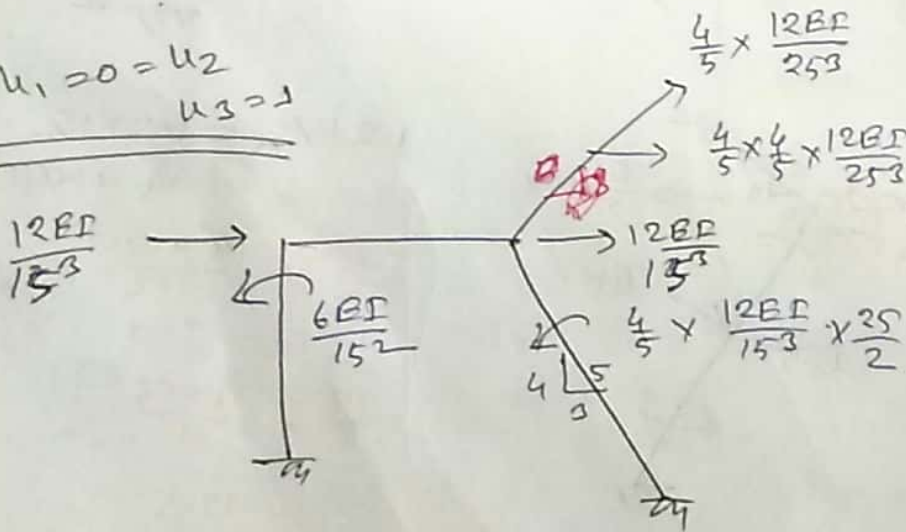 u₁ = 0 = u₂
u₃ = 1
4/5 × 12EI/25³
4/5 × 4/5 × 12EI/25³
12EI/15³
12EI/15³
6EI/15²
4/5 × 12EI/15³ × 25/2
4
5
3